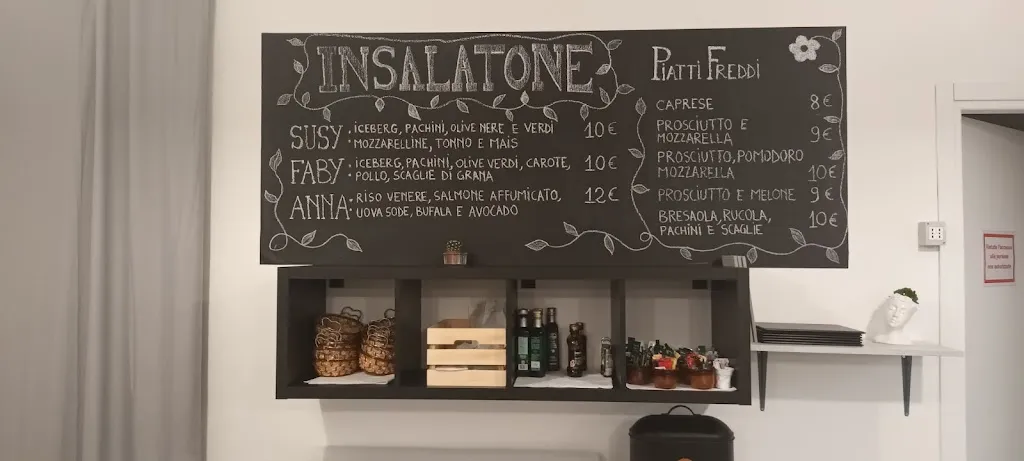 INSALATONE
SUSY • ICEBERG, PACHINI, OLIVE NERE E VERDI 10€
• MOZZARELLINE, TONNO E MAIS
FABY • ICEBERG, PACHINI, OLIVE VERDI, CAROTE, 10€
• POLLO, SCAGLIE DI GRANA
ANNA • RISO VENERE, SALMONE AFFUMICATO, 12€
UOVA SODE, BUFALA E AVOCADO
PIATTI FREDDI
CAPRESE 8€
PROSCIUTTO E
MOZZARELLA 9€
PROSCIUTTO, POMODORO
MOZZARELLA 10€
PROSCIUTTO E MELONE 9€
BRESAOLA, RUCOLA,
PACHINI E SCAGLIE 10€
Vietato l'accesso
alle persone
non autorizzate